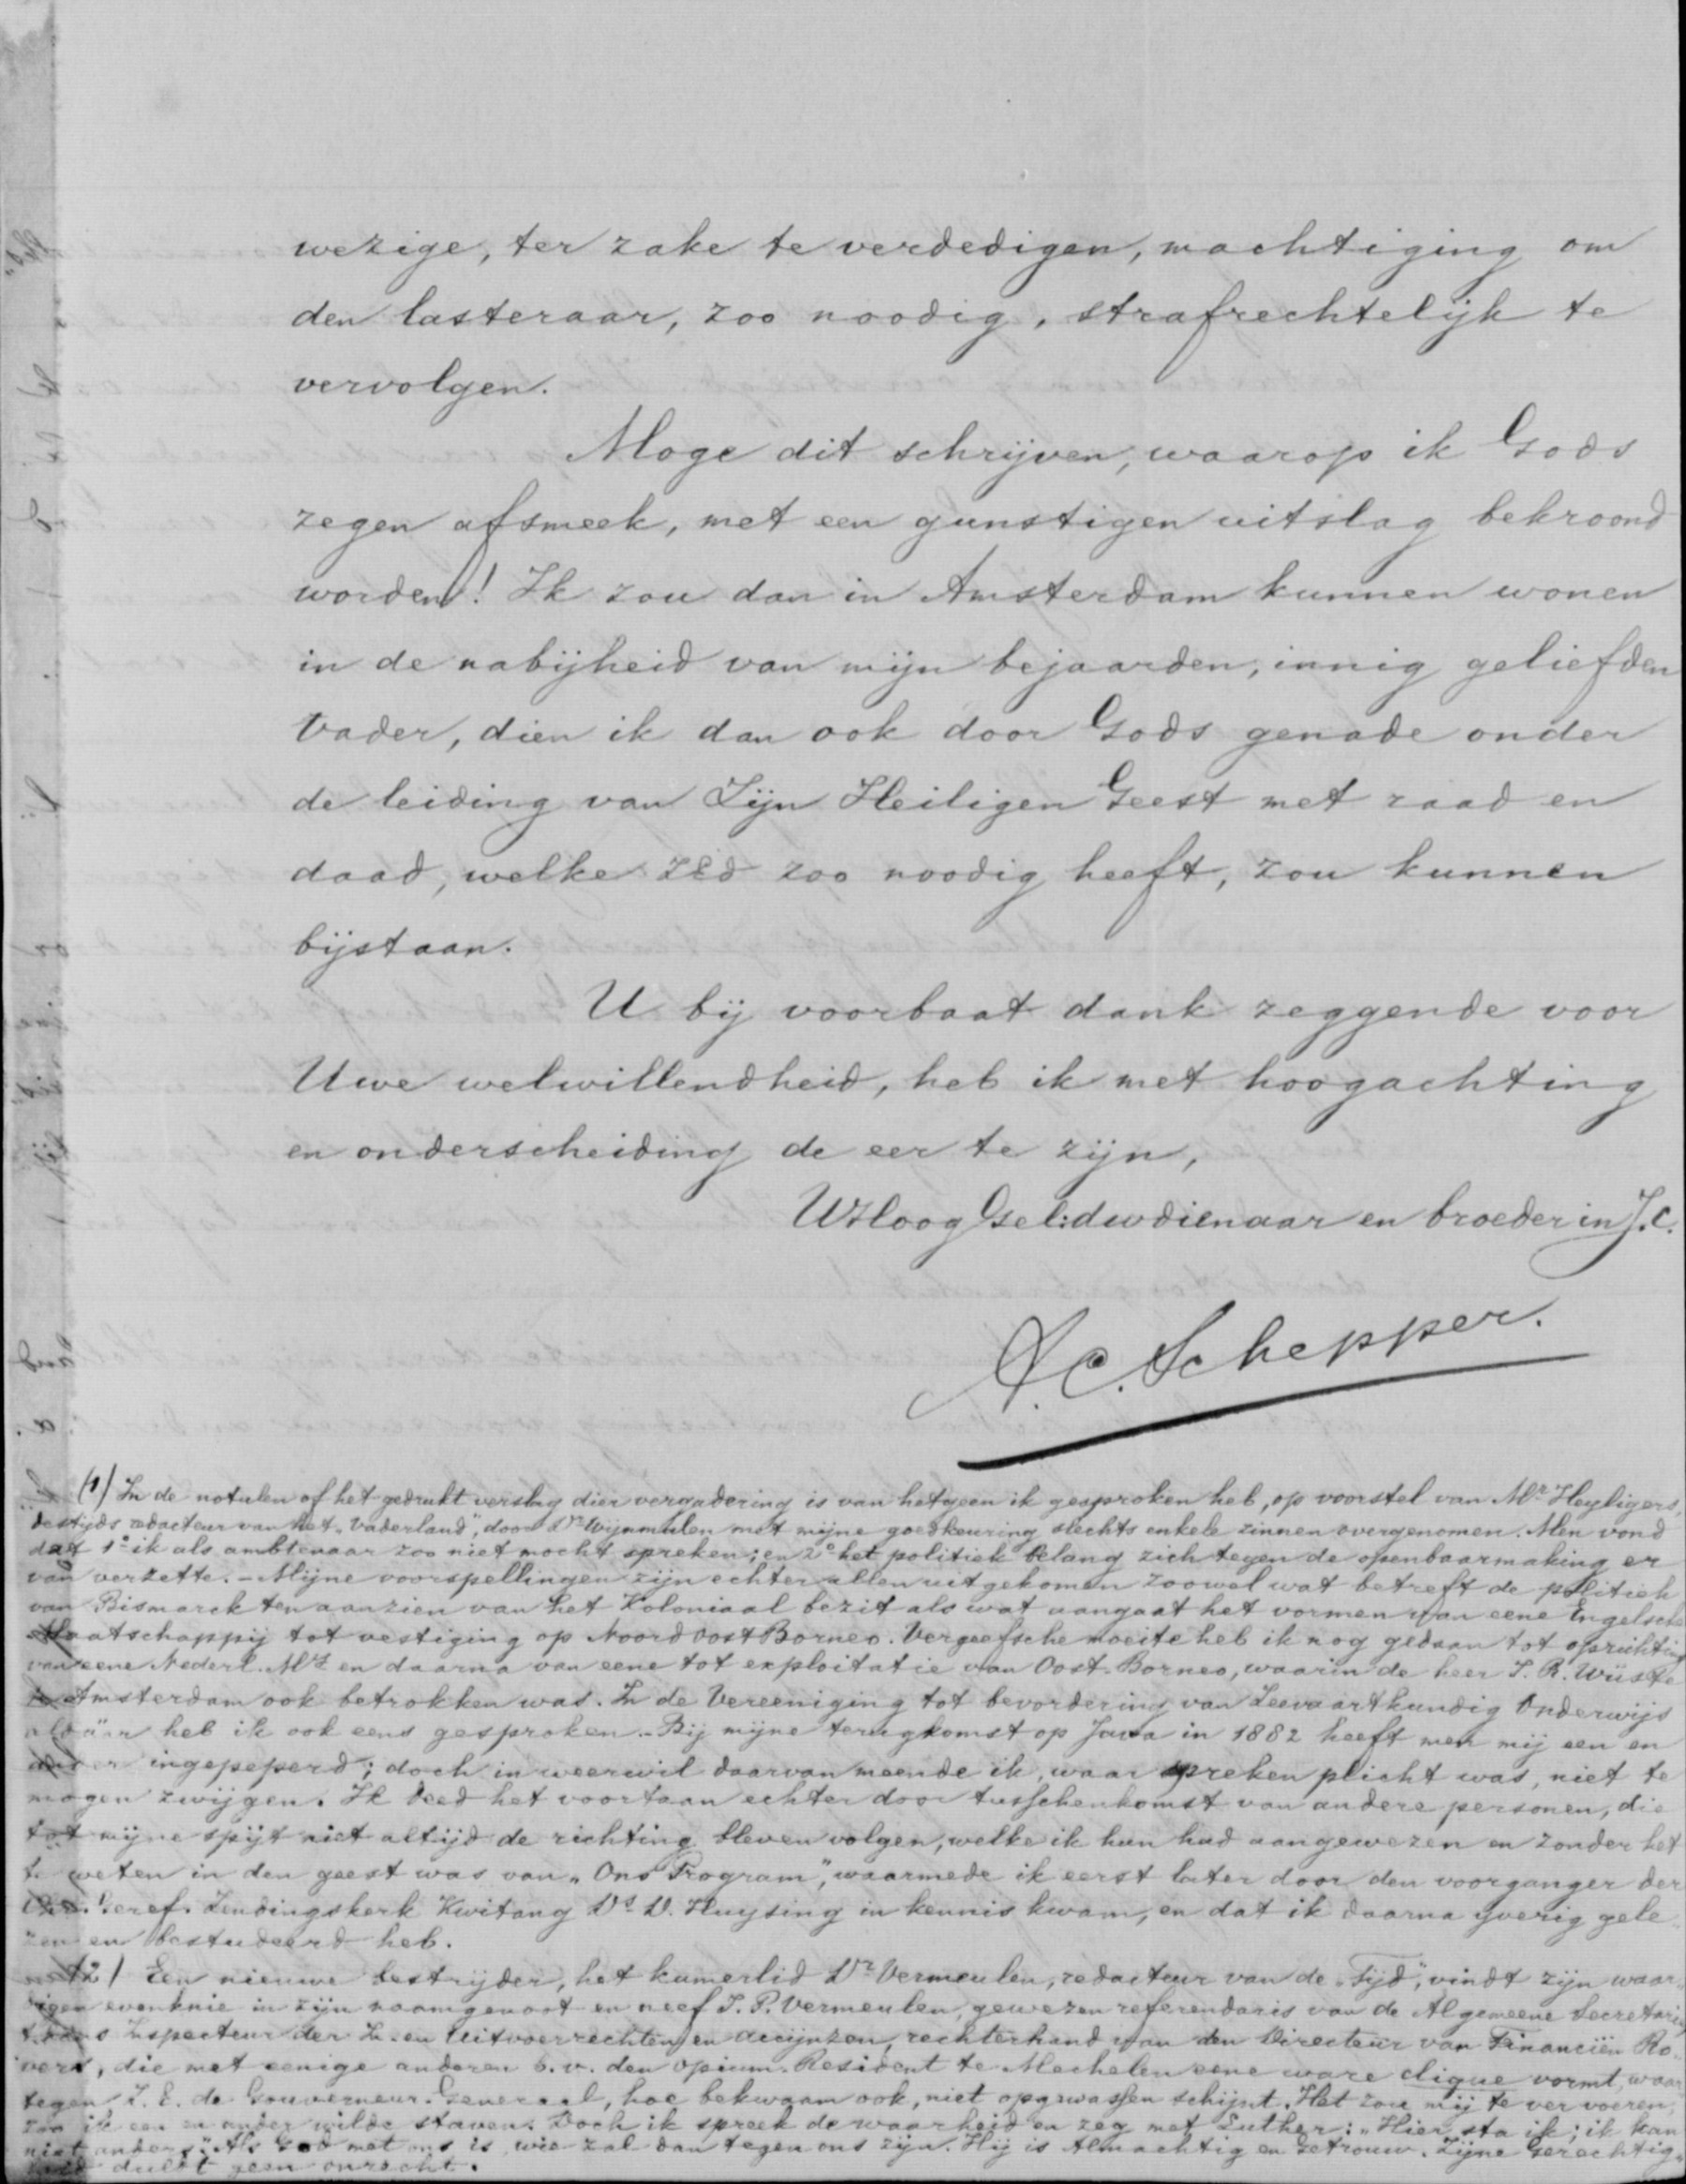 wezige, ter zake te verdedigen, machtiging om
den lasteraar, zoo noodig, strafrechtelijk te
vervolgen.
Moge dit schrijven, waarop ik Gods
zegen afsmeek, met een gunstigen uitslag bekroond
worden! Ik zou dan in Amsterdam kunnen wonen
in de nabijheid van mijn bejaarden, innig geliefden
Vader, dien ik dan ook door Gods genade onder
de leiding van Zijn Heiligen Geest met raad en
daad, welke ZEd zoo noodig heeft, zou kunnen
bijstaan.
U bij voorbaat dank zeggende voor
Uwe welwillendheid, heb ik met hoogachting
en onderscheiding de eer te zijn,
UHoogGel: dw dienaar en broeder in J.C.
A.C. Schepper.
(1) In de notulen of het gedrukt verslag dier vergadering is van hetgeen ik gesproken heb, op voorstel van Mr. Heyligers,
destijds redacteur van het „Vaderland", door Dr Wijnmalen met mijne goedkeuring slechts enkele zinnen overgenomen. Men vond
dat 1o ik als ambtenaar zoo niet mocht spreken; en 2o het politiek belang zich tegen de openbaarmaking er
van verzette. - Mijne voorspellingen zijn echter allen uitgekomen zoowel wat betreft de politiek
van Bismarck ten aanzien van het Koloniaal bezit als wat aangaat het vormen van eene Engelsche
Maatschappij tot vestiging op Noord Oost Borneo. Vergeefsche moeite heb ik nog gedaan tot oprichting
van eene Nederl. Mij en daarna van eene tot exploitatie van Oost-Borneo, waarin de heer J. R. Wüste
te Amsterdam ook betrokken was. In de Vereeniging tot bevordering van Zeevaartkundig Onderwijs
aldaar heb ik ook eens gesproken. - Bij mijne terugkomst op Java in 1882 heeft men mij een en
ander ingepeperd; doch in weerwil daarvan meende ik, waar spreken plicht was, niet te
mogen zwijgen. Ik deed het voortaan echter door tusschenkomst van andere personen, die
tot mijne spijt niet altijd de richting bleven volgen, welke ik hun had aangewezen en zonder het
te weten in den geest was van „Ons Program", waarmede ik eerst later door den voorganger der
Geref. Zendingskerk Kwitang Ds D. Huysing in kennis kwam, en dat ik daarna ijverig gele
zen en bestudeerd heb.
(2) Een nieuwe bestrijder, het kamerlid Dr Vermeulen, redacteur van de „Tijd", vindt zijn waar-
digen evenknie in zijn naamgenoot en neef J. P. Vermeulen, gewezen referendaris van de Algemeene Secretarie
thans Inspecteur der In- en Uitvoerrechten en accijnzen, rechterhand van den Directeur van Financiën Ro-
vers, die met eenige anderen b.v. den opium-Resident te Mechelen eene ware clique vormt, waar
tegen Z. E. de Gouverneur-Generaal, hoe bekwaam ook, niet opgewassen schijnt. Het zou mij te ver voeren,
zoo ik een en ander wilde staven. Doch ik spreek de waarheid en zeg met Luther: „Hier sta ik; ik kan
niet anders". Als God met ons is wie zal dan tegen ons zijn. Hij is Almachtig en Getrouw. Zijne Gerechtig-
heid duldt geen onrecht.